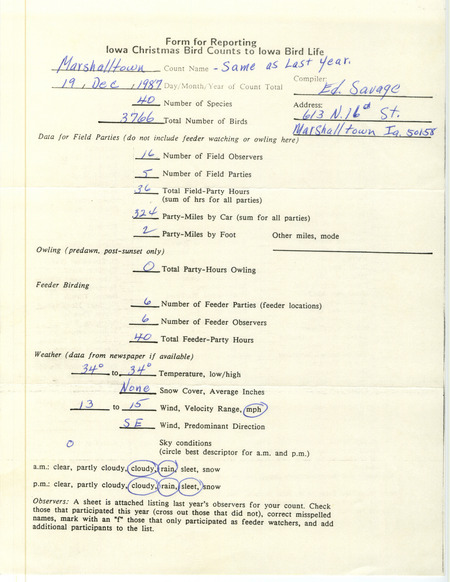 Form for Reporting
Iowa Christmas Bird Counts to Iowa Bird Life
Marshalltown Count Name - Same as Last year.
19, Dec, 1987 Day/Month/Year of Count Total
Compiler: Ed. Savage
40 Number of Species
Address: 613 N. 16th St.
3766 Total Number of Birds
Marshalltown Ia. 50158
Data for Field Parties (do not include feeder watching or owling here)
16 Number of Field Observers
5 Number of Field Parties
36 Total Field-Party Hours
(sum of hrs for all parties)
324 Party-Miles by Car (sum for all parties)
2 Party-Miles by Foot Other miles, mode
Owling (predawn, post-sunset only)
0 Total Party-Hours Owling
Feeder Birding
6 Number of Feeder Parties (feeder locations)
6 Number of Feeder Observers
40 Total Feeder-Party Hours
Weather (data from newspaper if available)
34° to 34° Temperature, low/high
None Snow Cover, Average Inches
13 to 15 Wind, Velocity Range, mph
SE Wind, Predominant Direction
0 Sky conditions
(circle best descriptor for a.m. and p.m.)
a.m.: clear, partly cloudy, cloudy, rain, sleet, snow
p.m.: clear, partly cloudy, cloudy, rain, sleet, snow
Observers: A sheet is attached listing last year's observers for your count. Check
those that participated this year (cross out those that did not), correct misspelled
names, mark with an "f" those that only participated as feeder watchers, and add
additional participants to the list.